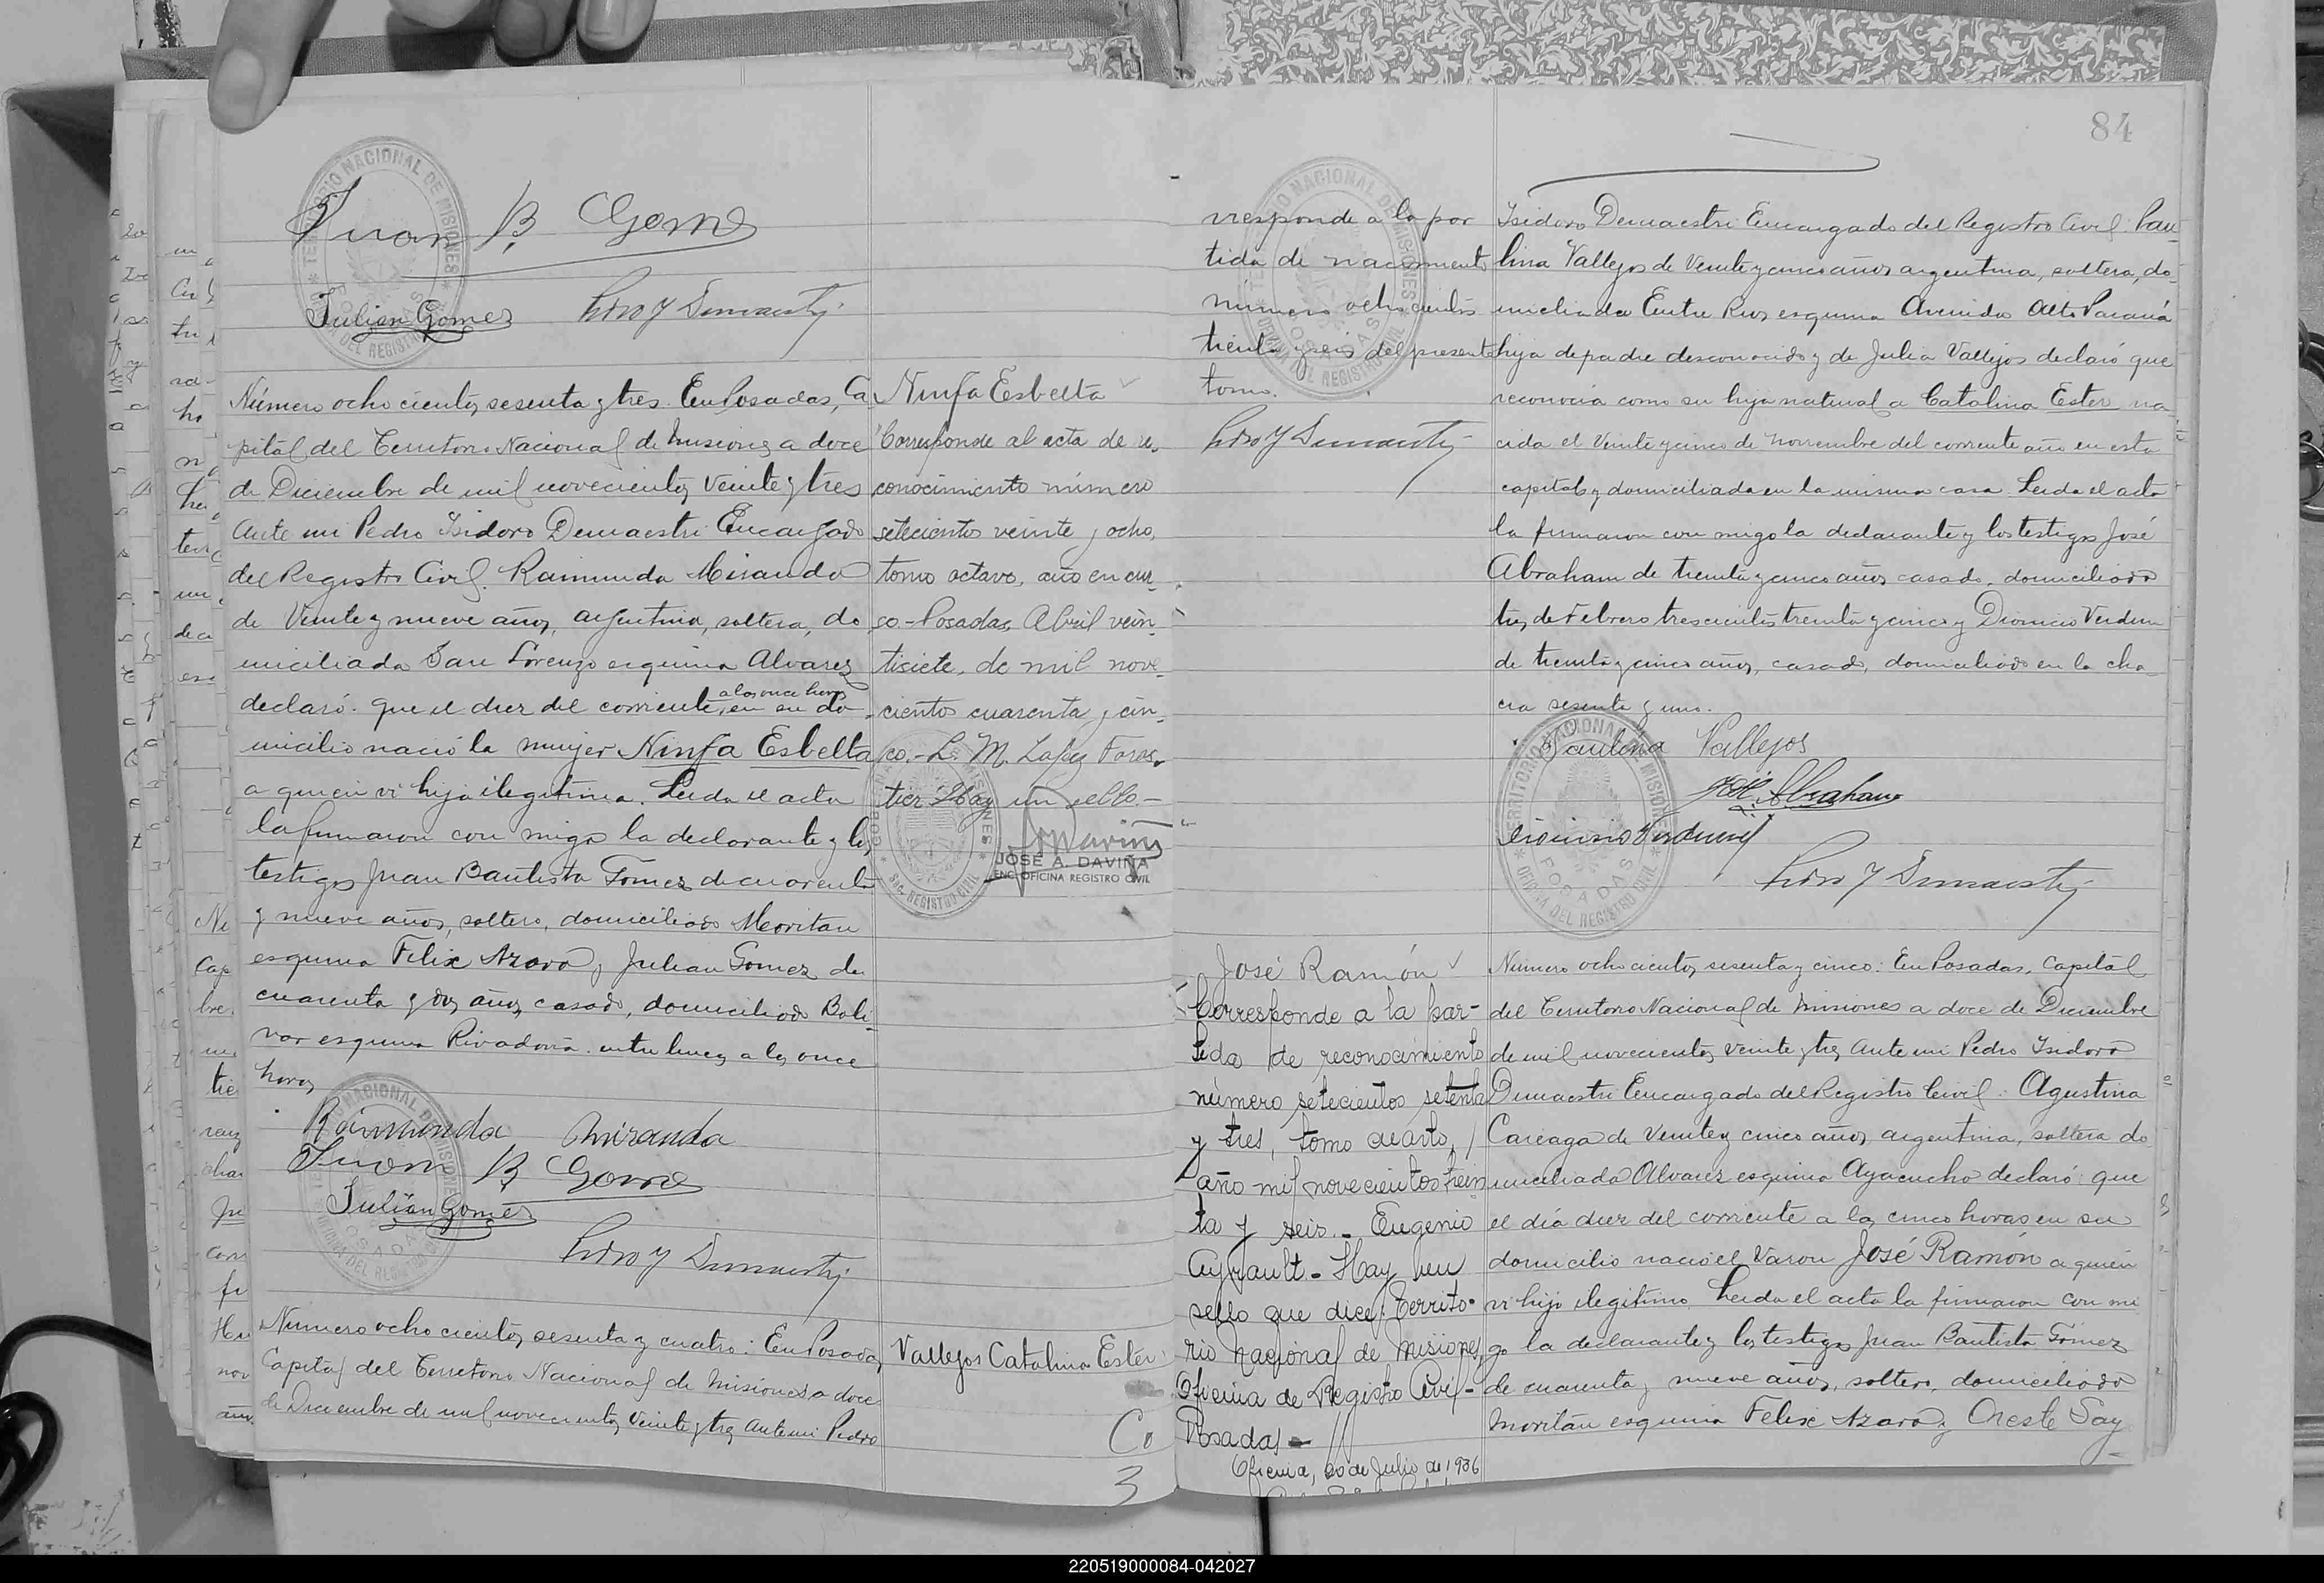 Juan B. Gomez
Julian Gomez
Pedro Y Demaestri
Número ochocientos sesenta y tres. En Posadas, Ca
pital del Territorio Nacional de Misiones a doce
de Diciembre de mil novecientos veinte y tres
Ante mi Pedro Isidoro Demaestri Encargado
del Registro Civil. Raimunda Miranda
de Veinte y nueve años, argentina, soltera, do
miciliada San Lorenzo esquina Alvarez
declaró: que el diez del corriente, a las once horas en su do
micilio nació la mujer Ninfa Esbelta
a quien vi hija ilegitima. Leida el acta
la firmaron con migo la declarante y los
testigos Juan Bautista Gomez de cuarenta
y nueve años, soltero, domiciliado Moritan
esquina Felix Azara y Julian Gomez de
cuarenta y dos años, casado, domiciliado Boli
var esquina Rivadavia. entre lineas a las once
horas
Raimunda Miranda
Juan B. Gomez
Julian Gomez
Pedro Y Demaestri
Número ochocientos sesenta y cuatro: En Posadas,
Capital del Territorio Nacional de Misiones a doce
de Diciembre de mil novecientos veinte y tres ante mi Pedro
Ninfa Esbelta
Corresponde al acta de re-
conocimiento número
setecientos veinte y ocho,
tomo octavo, año en cur-
so.- Posadas, Abril vein-
tisiete, de mil nove-
cientos cuarenta y cin-
co.- L. M. Lopez Foras-
tier Hay un sello.-
JOSÉ A. DAVIÑA
ENC. OFICINA REGISTRO CIVIL
Vallejos Catalina Ester
Co
3
84
rresponde a la par
tida de nacimiento
número ochocientos
treinta y seis del presente
tomo.
Pedro Y Demaestri
José Ramón
Corresponde a la par-
tida de reconocimiento
número setecientos setenta
y tres, tomo cuarto,
año mil novecientos trein
ta y seis.- Eugenio
Ayrault.- Hay un
sello que dice: Territo-
rio Nacional de Misiones,
Oficina de Registro Civil-
Posadas-
Oficina, 20 de Julio de 1936
Isidoro Demaestri Encargado del Registro Civil: Pau
lina Vallejos de Veinte y cinco años argentina, soltera, do-
miciliada Entre Rios esquina Avenida Alto Paraná
hija de padre desconocido y de Julia Vallejos declaró que
reconocia como su hija natural a Catalina Ester na-
cida el veinte y cinco de noviembre del corriente año en esta
capital y domiciliada en la misma casa. Leida el acta
la firmaron con migo la declarante y los testigos José
Abraham de treinta y cinco años, casado, domiciliado
tres de Febrero trescientos treinta y cinco y Dionicio Verdun
de treinta y cinco años, casado, domiciliado en la cha-
cra sesenta y uno.
Paulina Vallejos
José Abraham
Dionicio Verdun
Pedro Y Demaestri
Número ochocientos sesenta y cinco: En Posadas, Capital
del Territorio Nacional de Misiones a doce de Diciembre
de mil novecientos veinte y tres Ante mi Pedro Isidoro
Demaestri Encargado del Registro Civil: Agustina
Careaga de Veinte y cinco años, argentina, soltera do
miciliada Alvarez esquina Ayacucho declaró: que
el día diez del corriente a las cinco horas en su
domicilio nació el Varon José Ramón a quien
vi hijo ilegitimo. Leida el acta la firmaron con mi
go la declarante y los testigos Juan Bautista Gómez
de cuarenta y nueve años, soltero, domiciliado
Moritan esquina Felix Azara y Oreste Say
220519000084-042027